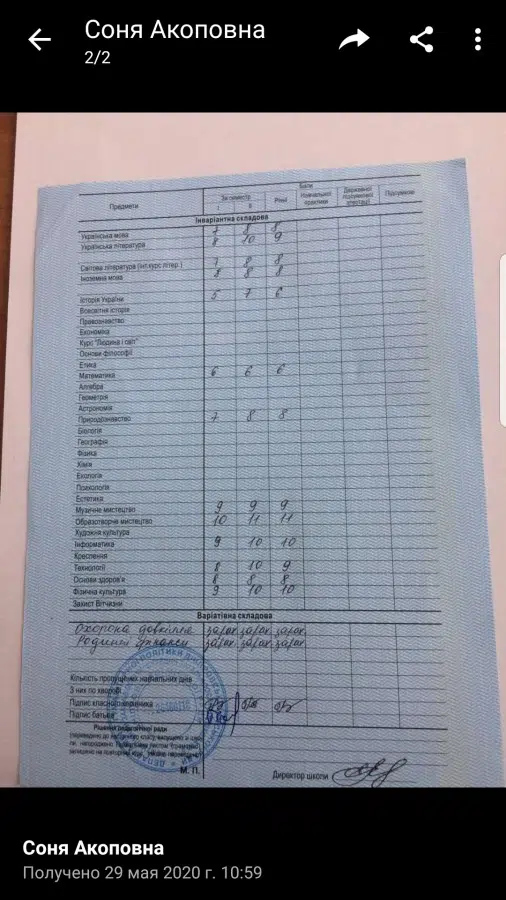 Соня Акоповна
2/2
Предмети За семестр Річні Бали
I II Навчальної практики Державної підсумкової атестації Підсумкові
Інваріантна складова
Українська мова 7 8 8
Українська література 8 10 9
Світова література (інт.курс літер.) 7 8 8
Іноземна мова 8 8 8
Історія України 5 7 6
Всесвітня історія
Правознавство
Економіка
Курс "Людина і світ"
Основи філософії
Етика
Математика 6 6 6
Алгебра
Геометрія
Астрономія
Природознавство 7 8 8
Біологія
Географія
Фізика
Хімія
Екологія
Психологія
Естетика
Музичне мистецтво 9 9 9
Образотворче мистецтво 10 11 11
Художня культура
Інформатика 9 10 10
Креслення
Технології 8 10 9
Основи здоров'я 8 8 8
Фізична культура 9 10 10
Захист Вітчизни
Варіативна складова
Охорона довкілля зарах. зарах. зарах.
Родинні фінанси зарах. зарах. зарах.
Кількість пропущених навчальних днів
З них по хворобі
Підпис класного керівника
Підпис батьків
Рішення педагогічної ради
М. П. Директор школи
Соня Акоповна
Получено 29 мая 2020 г. 10:59